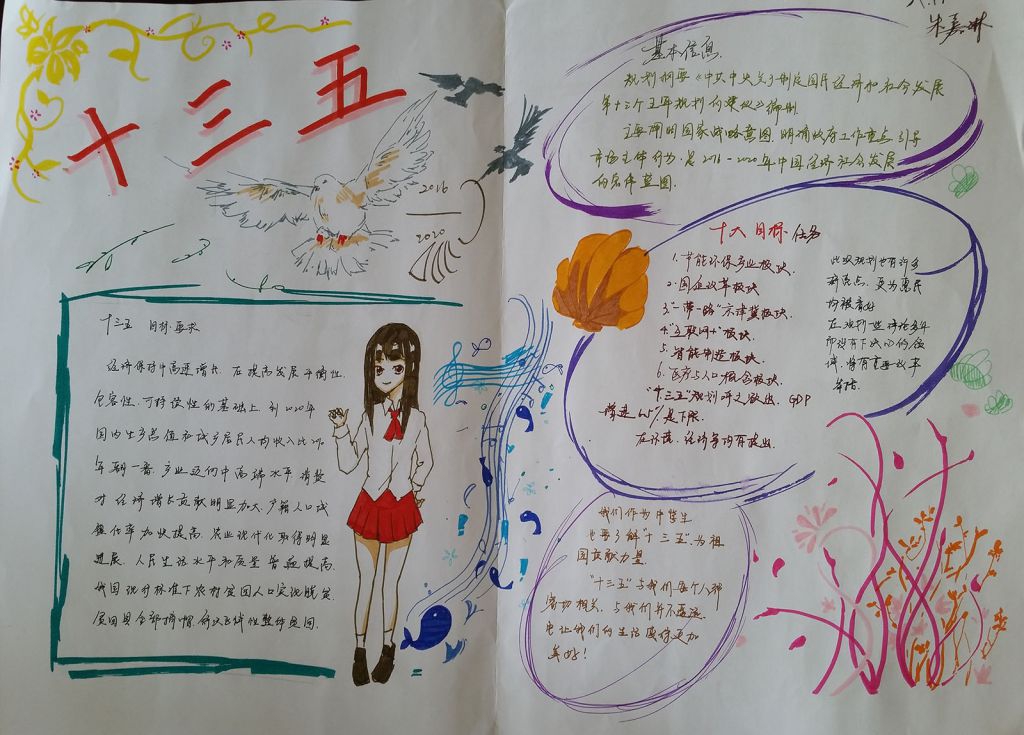 十三五
2016
2020
十三五 目标要求
经济保持中高速增长.在提高发展平衡性.
包容性.可持续性的基础上.到2020年
国内生产总值和城乡居民人均收入比2010
年翻一番.产业迈向中高端水平.消费
对经济增长贡献明显加大.户籍人口城
镇化率加快提高.农业现代化取得明显
进展.人民生活水平和质量普遍提高.
我国现行标准下农村贫困人口实现脱贫.
贫困县全部摘帽.解决区域性整体贫困.
朱嘉琳
基本信息
规划纲要《中共中央关于制定国民经济和社会发展
第十三个五年规划的建议》编制
主要阐明国家战略意图.明确政府工作重点.引导
市场主体行为.是2016-2020年中国经济社会发展
的宏伟蓝图.
十大目标任务
1.节能环保产业板块.
2.国企改革板块
3."一带一路"京津冀板块.
4."互联网+"板块.
5.智能制造板块.
6.医疗与人口概念板块.
"十三五"规划呼之欲出.GDP
增速6.5%是下限.
在环保.经济等均有提出.
此次规划也有许多
新亮点.更为惠民
均被看好
在规划进行讨论多年
而没有下决心的领
域.将有重要改革
举措.
我们作为中学生
也要了解"十三五".为祖
国贡献力量.
"十三五"与我们每个人都
密切相关.与我们并不遥远.
它让我们的生活变得更加
美好!